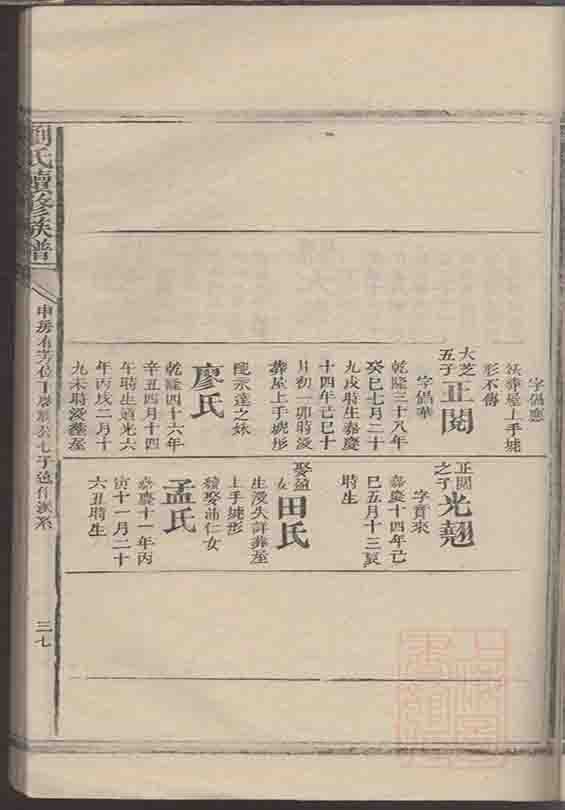 字倡應
歿葬屋上手墟
形不傳
大芝
五子
正閱
字倡華
乾隆三十八年
癸巳七月二十
九戌時生嘉慶
十四年己巳十
月初一卯時歿
葬屋上手墟形
廖氏
院永達之妹
乾隆四十六年
辛丑四月十四
午時生道光六
年丙戌二月十
九未時歿葬屋
正閱
之子
光翹
字寶來
嘉慶十四年己
巳五月十三
時生
田氏
娶
女
生歿失詳葬屋
上手墟形
孟氏
續娶 仁女
嘉慶十一年丙
寅十一月二十
六丑時生
劉氏續修族譜
申房有芳位下
三七